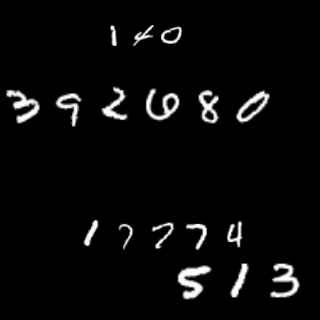 140
392680
17774
513